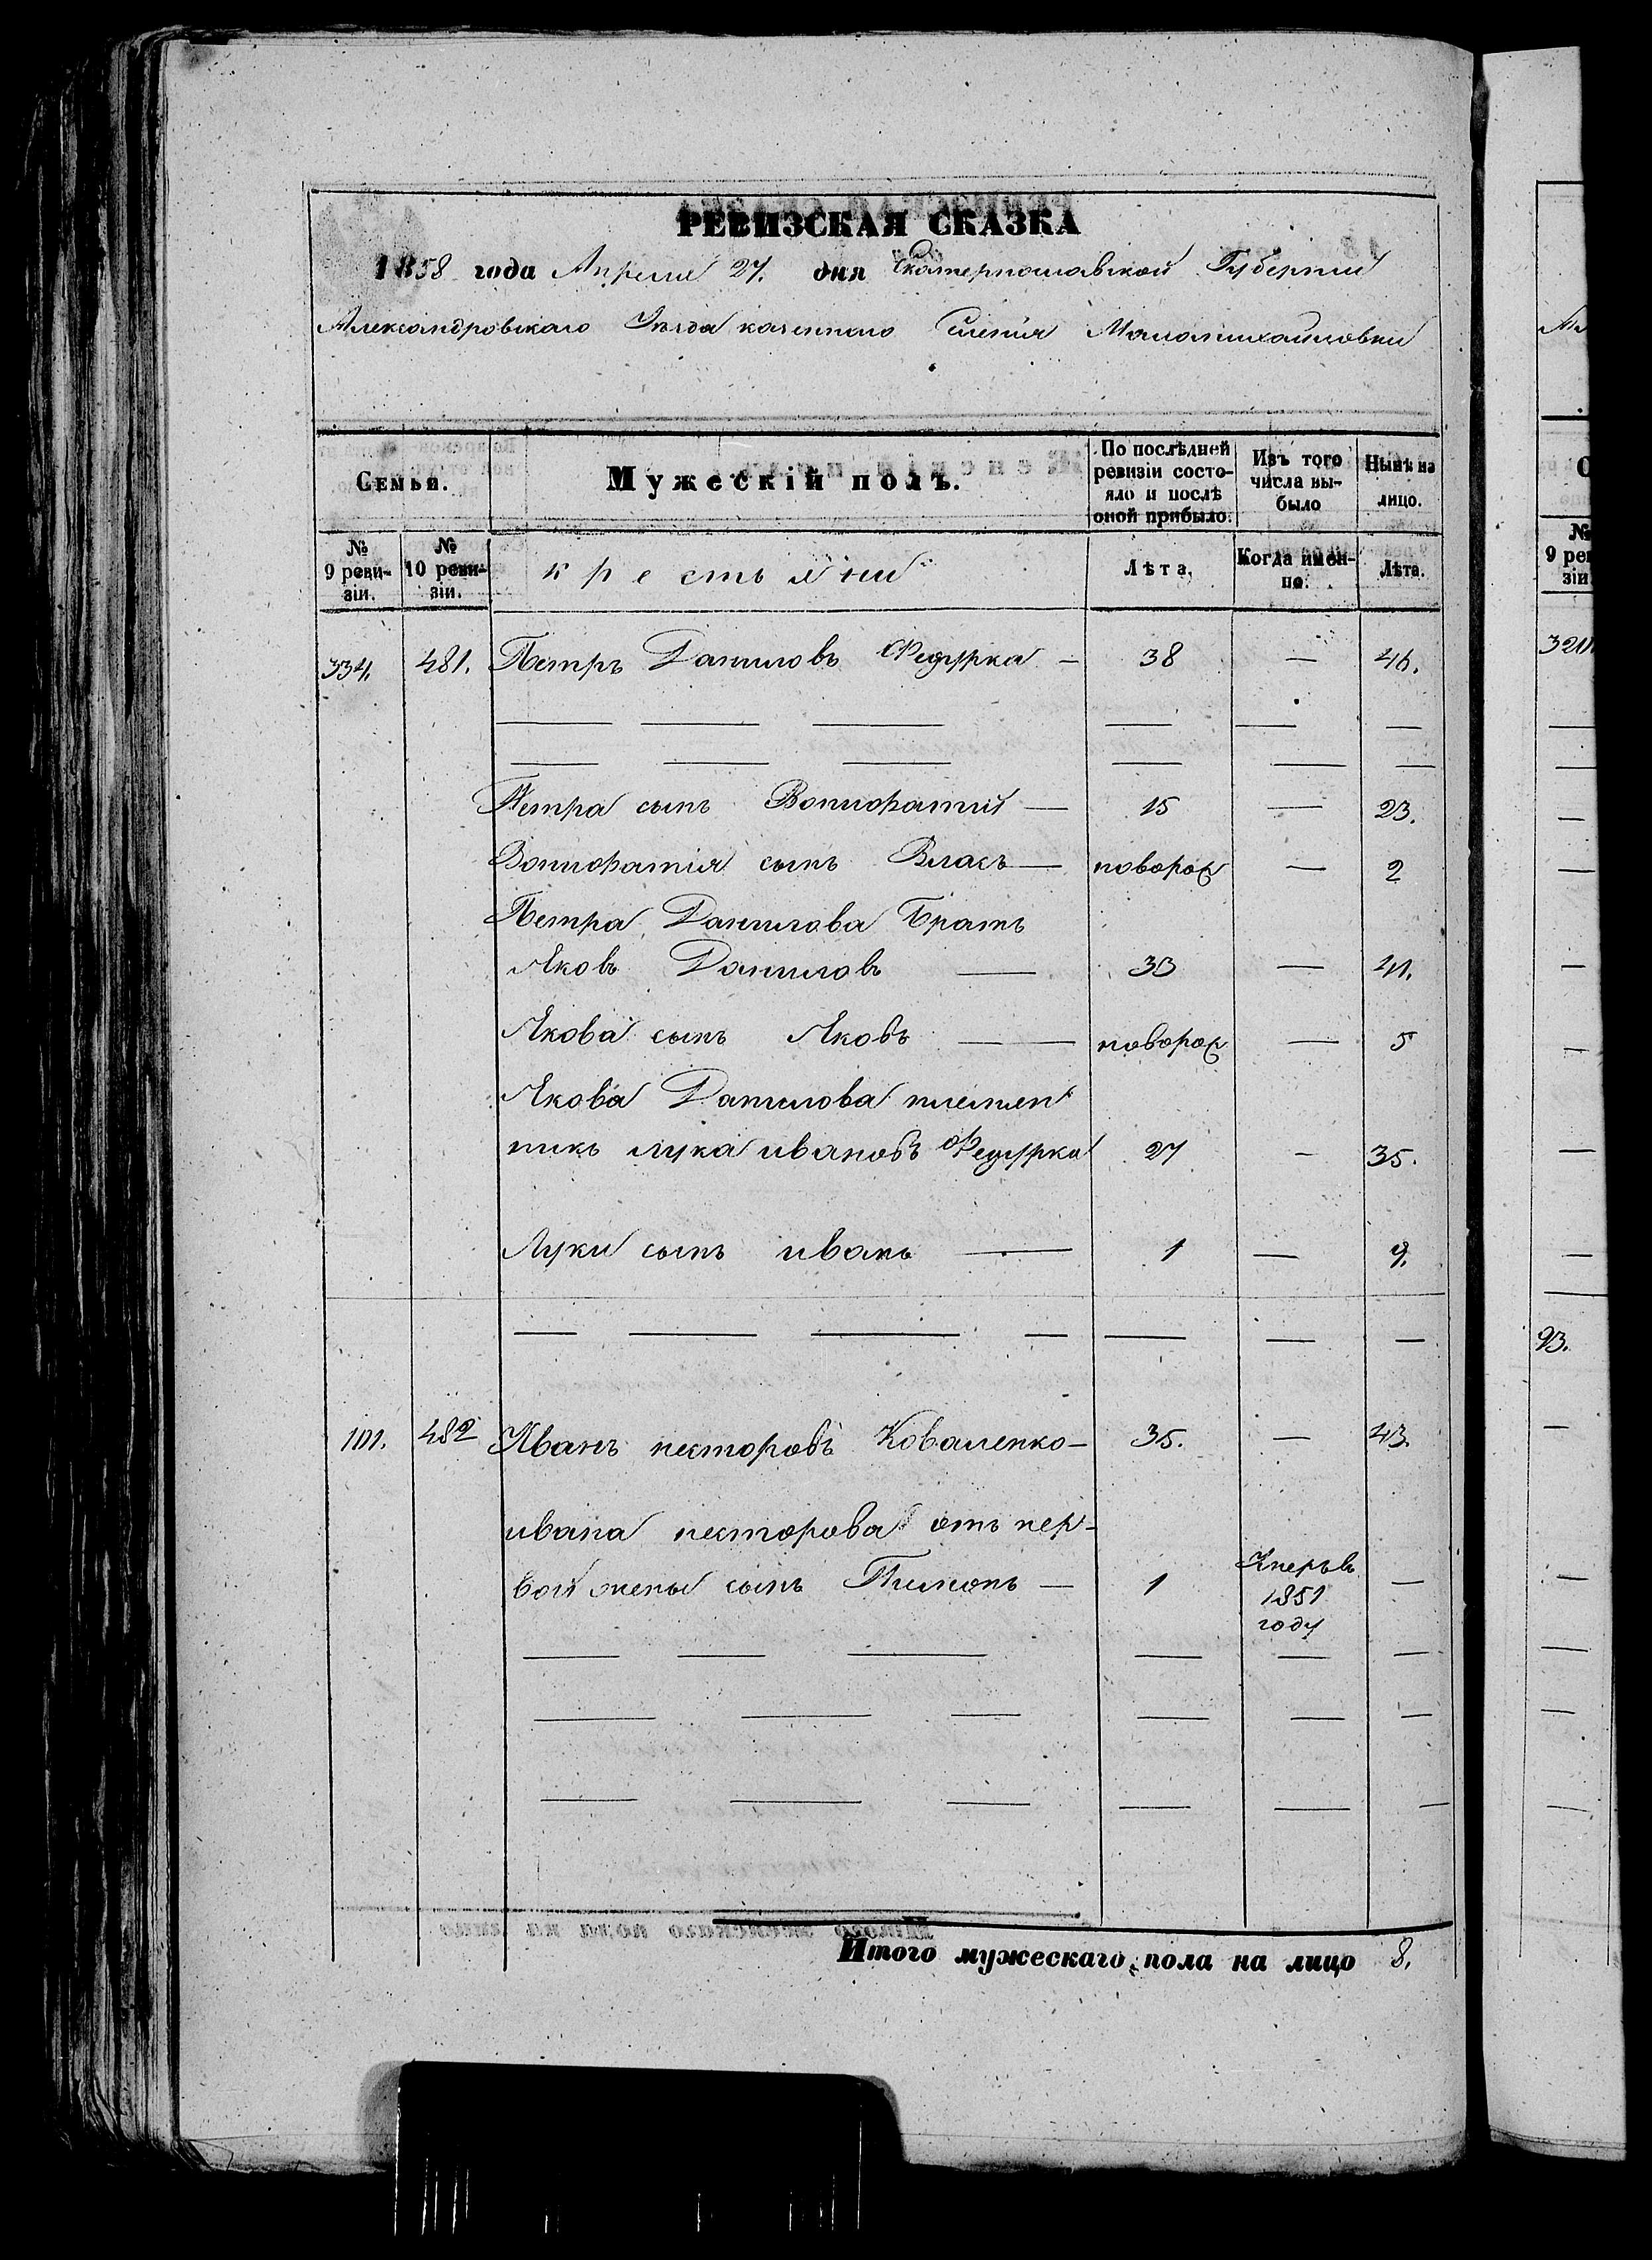 РЕВИЗСКАЯ СКАЗКА
1858 года Апреля 27. дня Екатеринославской Губернии
Александровскаго Уезда казеннаго Селения Маломихайловки
Семьи.
Мужескій полъ.
По послѣдней ревизіи состо-яло и послѣ оной прибыло.
Изъ того числа вы-было
Нынѣ на лицо.
№ 9 реви-зіи.
№ 10 реви-зіи.
крестьяни
Лѣта.
Когда имен-но.
Лѣта.
334. 481. Петръ Даниловъ Федурка — 38 — 46.
Петра сынъ Вонифатий — 15 — 23.
Вонифатія сынъ Власъ — поворож — 2
Петра Данилова Братъ
Яковъ Даниловъ — 33 — 41.
Якова сынъ Яковъ — новорож — 5
Якова Данилова племен
никъ лука ивановъ Федурка 27 — 35.
Луки сынъ иванъ — 1 — 9.
101. 482 Иванъ несторовъ Коваленко — 35. — 43.
ивана несторова отъ пер-
вой жены сынъ Пимонъ — 1 —
1851
году
Итого мужескаго пола на лицо 8.
№
9 рев
зіи
93.